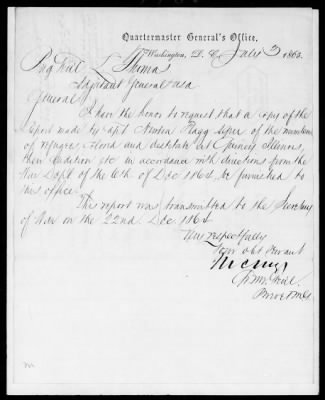 Quartermaster General's Office,
Washington, D. C. July 3 1865.
Brig Genl L Thomas
Adjutant General USA
General,
I have the honor to request that a copy of the
Report made by Capt Newton Flagg after of the numbers
of refugees, and destitute at Quincy Illinois,
their Condition etc in accordance with directions from the
War Dept of the 6th of Dec 1864, be furnished to
this office.
This report was transmitted to the Secretary
of War on the 22nd Dec 1864
Very respectfully
Your obt Servant